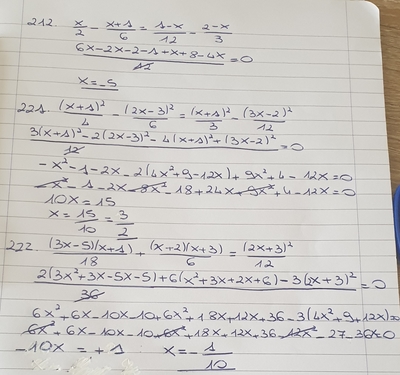 212. x/2 - (x+1)/6 = (1-x)/12 - (2-x)/3
(6x-2x-2-1+x+8-4x)/12 = 0
x = -5
221. (x+1)²/4 - (2x-3)²/6 = (x+1)²/3 - (3x-2)²/12
(3(x+1)² - 2(2x-3)² - 4(x+1)² + (3x-2)²)/12 = 0
-x² - 1 - 2x - 2(4x²+9-12x) + 9x² + 4 - 12x = 0
-x² - 1 - 2x - 8x² - 18 + 24x + 9x² + 4 - 12x = 0
10x = 15
x = 15/10 = 3/2
222. (3x-5)(x+1)/18 + (x+2)(x+3)/6 = (2x+3)²/12
(2(3x²+3x-5x-5) + 6(x²+3x+2x+6) - 3(2x+3)²)/36 = 0
6x² + 6x - 10x - 10 + 6x² + 18x + 12x + 36 - 3(4x²+9+12x) = 0
6x² + 6x - 10x - 10 + 6x² + 18x + 12x + 36 - 12x² - 27 - 36x = 0
-10x = +1 x = -1/10